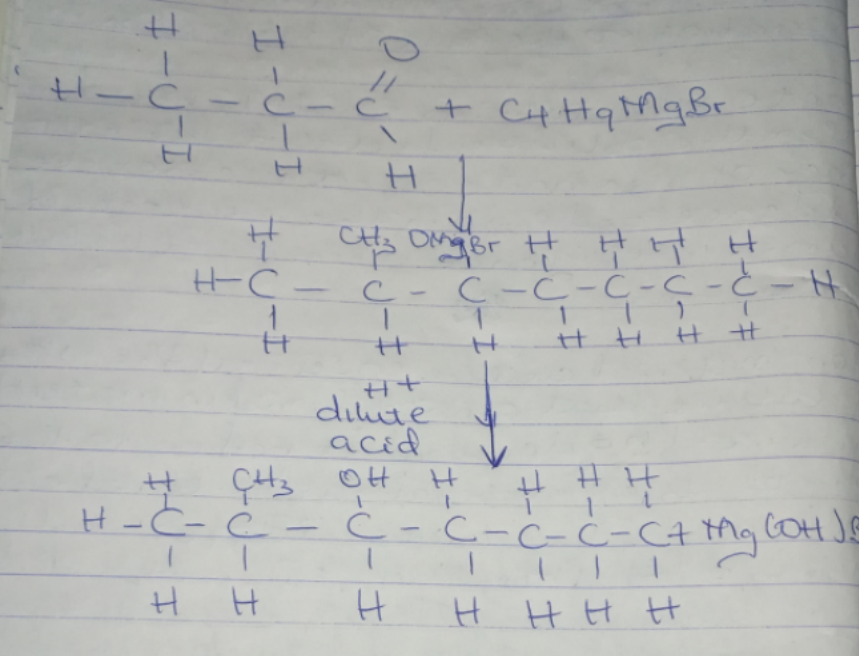 H H O
H — C — C — C + C4H9MgBr
H H H
H CH3 OMgBr H H H H
H — C — C — C — C — C — C — C — H
H H H H H H H
H+
dilute
acid
H CH3 OH H H H H
H — C — C — C — C — C — C — C + Mg(OH)
H H H H H H H